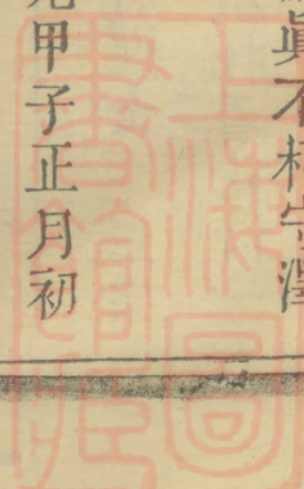 眞不朽
甲子正月初
上海圖
書館藏